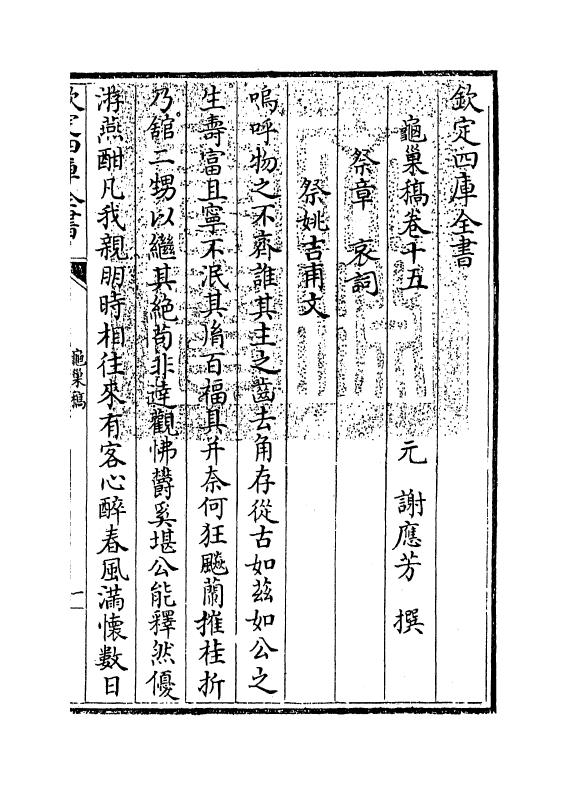 欽定四庫全書
龜巢稿卷十五
元 謝應芳 撰
祭章 哀詞
祭姚吉甫文
嗚呼物之不齊誰其主之齒去角存從古如茲如公之
生壽富且寧不泯其脩百福具并奈何狂飈蘭摧桂折
乃舘二甥以繼其絶茍非達觀怫欝奚堪公能釋然優
游燕酣凡我親朋時相往來有客心醉春風滿懷數日
欽定四庫全書
龜巢稿
一